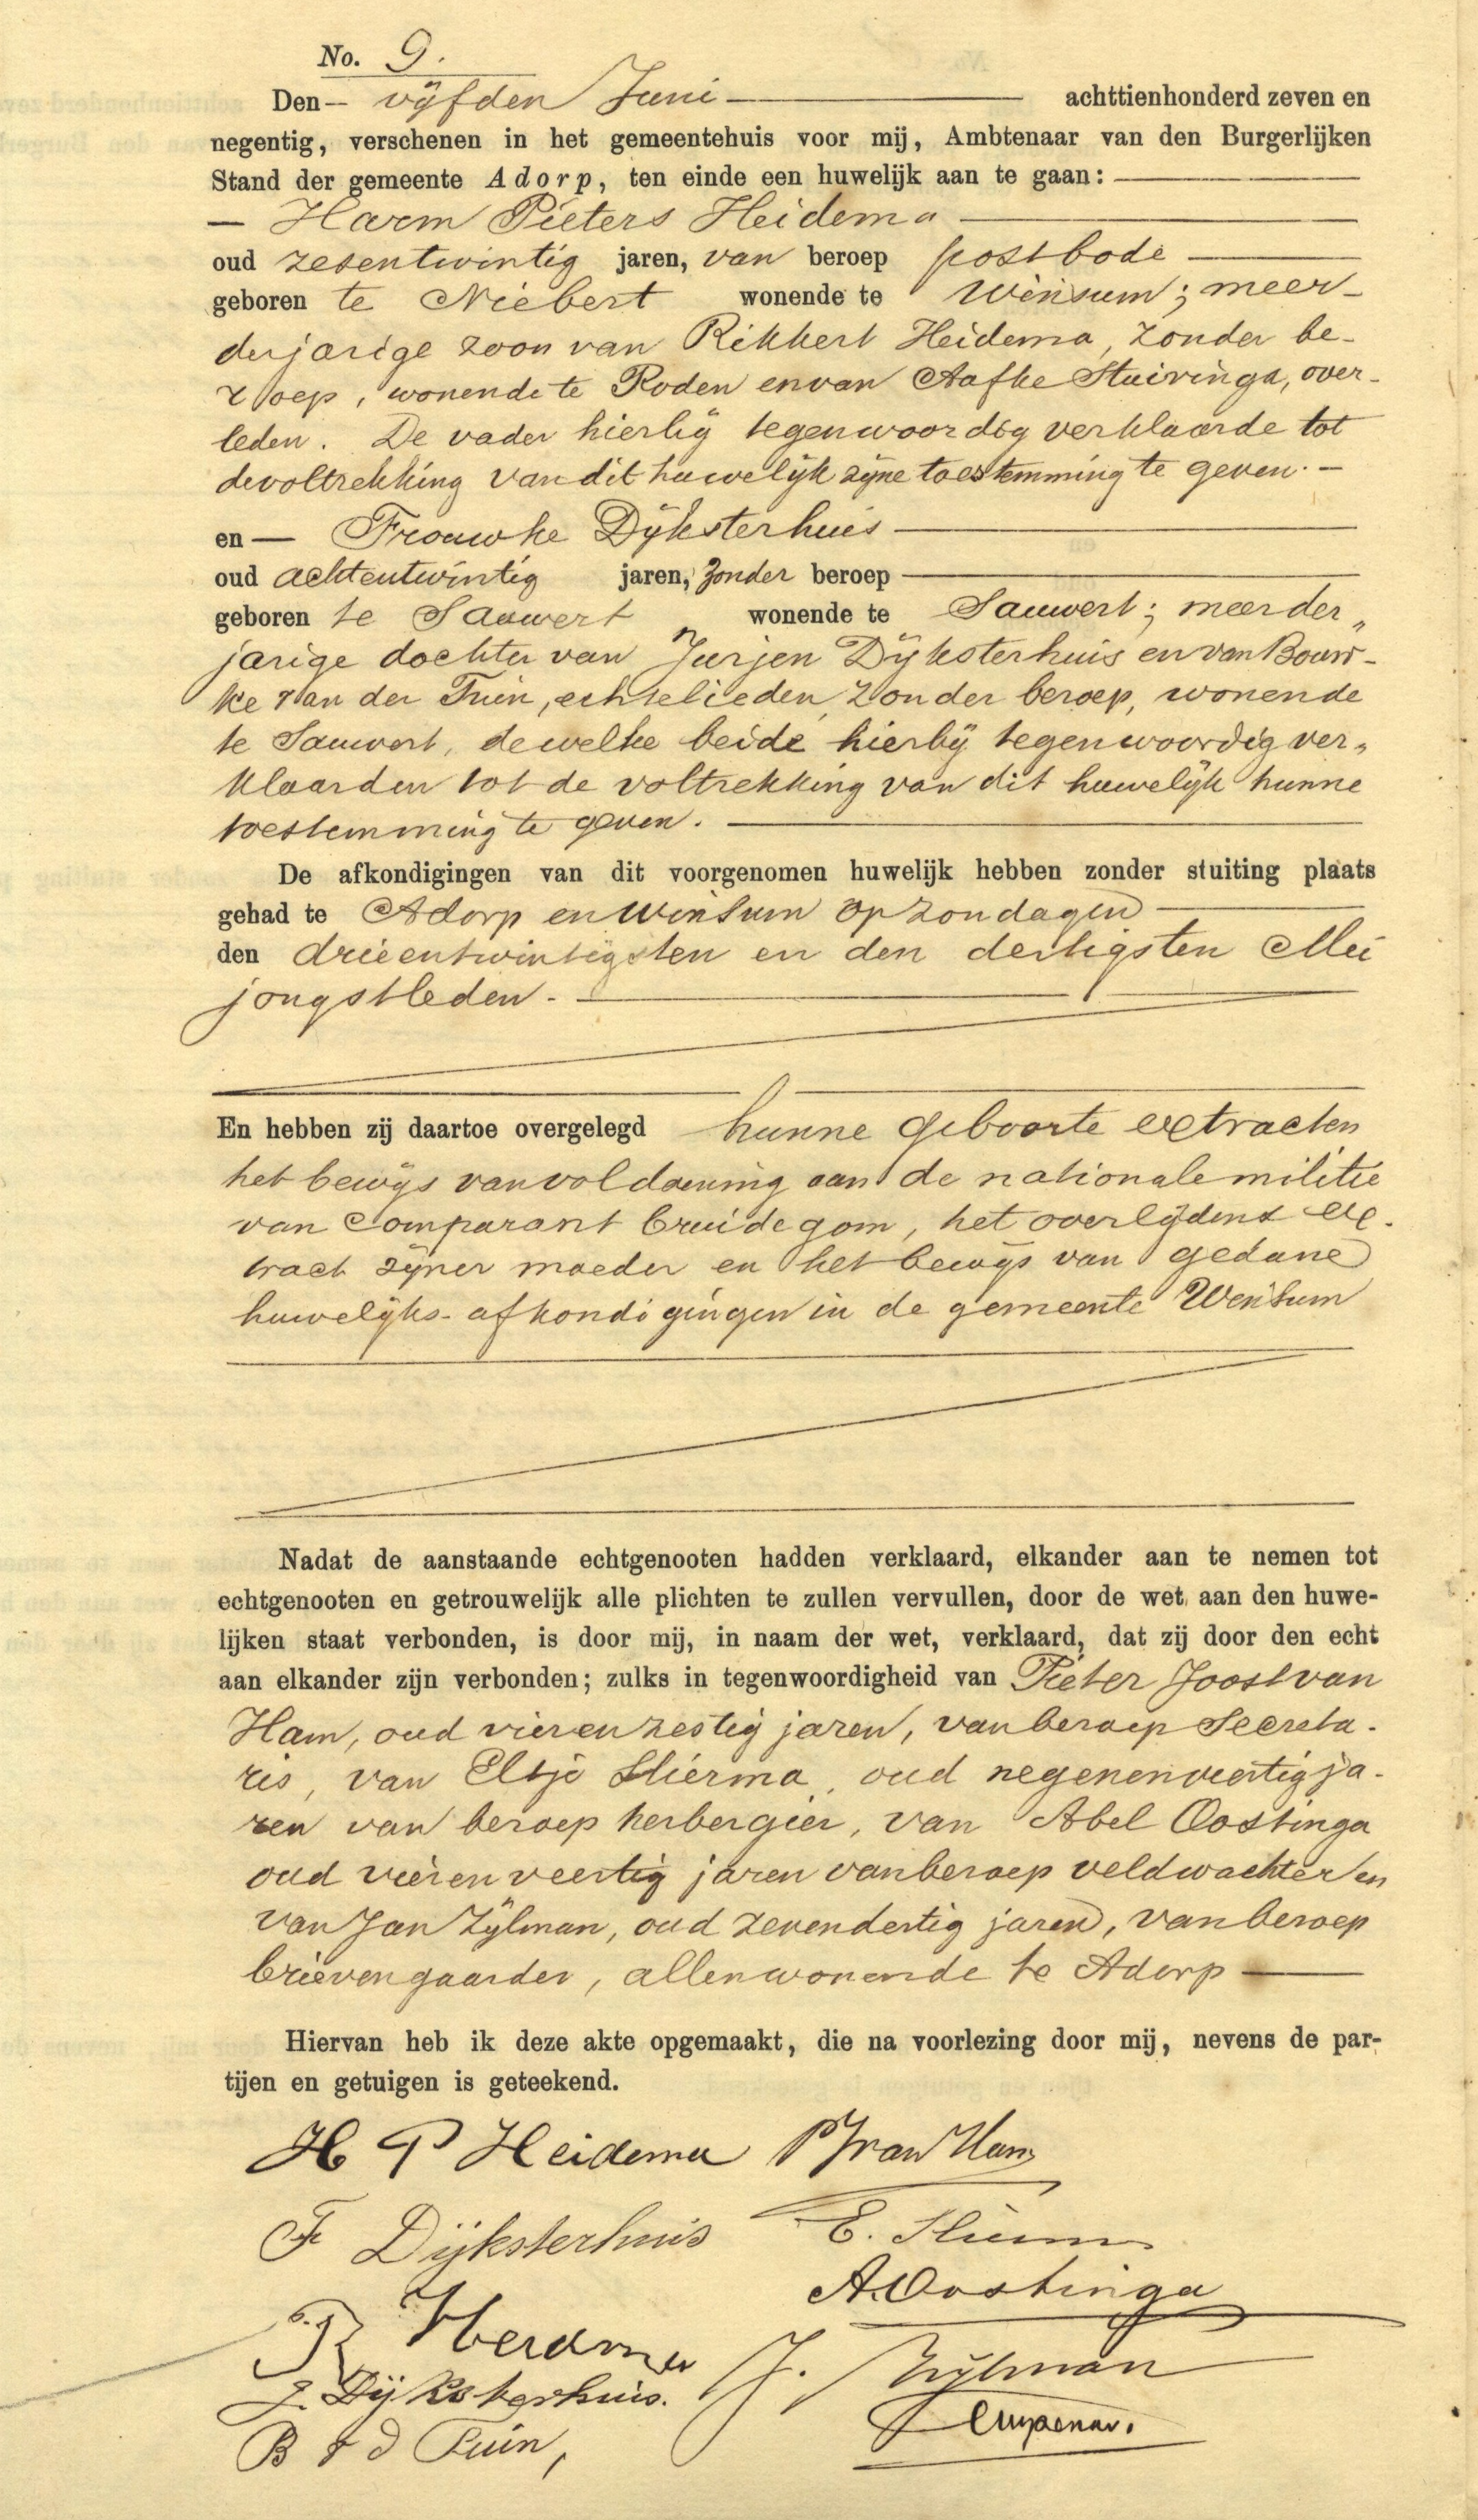 No. 9.
Den vijfden Juni achttienhonderd zeven en
negentig, verschenen in het gemeentehuis voor mij, Ambtenaar van den Burgerlijken
Stand der gemeente Adorp, ten einde een huwelijk aan te gaan:
Harm Pieters Heidema
oud zesentwintig jaren, van beroep postbode
geboren te Niebert wonende te Winsum; meer-
derjarige zoon van Rikkert Heidema, zonder be-
roep, wonende te Roden en van Aafke Stuivinga, over-
leden. De vader hierbij tegenwoordig verklaarde tot
de voltrekking van dit huwelijk zijne toestemming te geven.
en Frouwke Dijksterhuis
oud achtentwintig jaren, zonder beroep
geboren te Sauwert wonende te Sauwert; meerder„
jarige dochter van Jurjen Dijksterhuis en van Bouw-
ke van der Tuin, echtelieden, zonder beroep, wonende
te Sauwert, dewelke beide hierbij tegenwoordig ver„
klaarden tot de voltrekking van dit huwelijk hunne
toestemming te geven.
De afkondigingen van dit voorgenomen huwelijk hebben zonder stuiting plaats
gehad te Adorp en Winsum op zondagen
den drieentwintigsten en den dertigsten Mei
jongstleden.
En hebben zij daartoe overgelegd hunne geboorte extracten
het bewijs van voldoening aan de nationale militie
van Comparant bruidegom, het overlijdens ex-
tract zijner moeder en het bewijs van gedane
huwelijks-afkondigingen in de gemeente Winsum
Nadat de aanstaande echtgenooten hadden verklaard, elkander aan te nemen tot
echtgenooten en getrouwelijk alle plichten te zullen vervullen, door de wet aan den huwe-
lijken staat verbonden, is door mij, in naam der wet, verklaard, dat zij door den echt
aan elkander zijn verbonden; zulks in tegenwoordigheid van Pieter Joost van
Ham, oud vierenzestig jaren, van beroep Secreta-
ris, van Eltje Slierma, oud negenenveertig ja-
ren van beroep herbergier, van Abel Oostinga
oud vierenveertig jaren van beroep veldwachter en
van Jan Zijlman, oud zevendertig jaren, van beroep
brievengaarder, allen wonende te Adorp
Hiervan heb ik deze akte opgemaakt, die na voorlezing door mij, nevens de par-
tijen en getuigen is geteekend.
H P Heidema PJ van Ham
F Dijksterhuis E.
A. Oostinga
R Heidema
J. Zijlman
J. Dijksterhuis.
B v d Tuin,